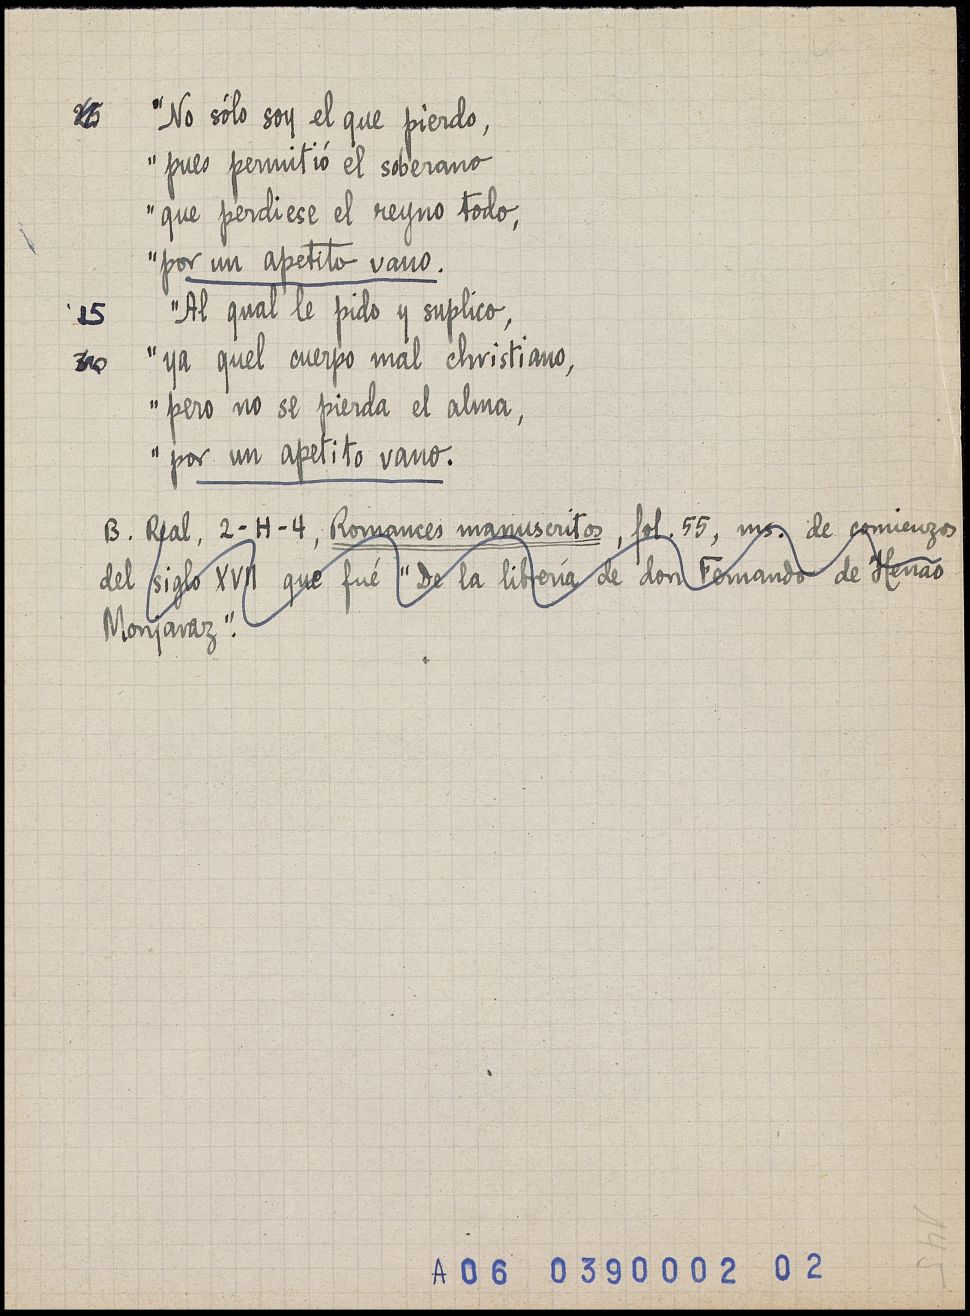 "No sólo soy el que pierdo,
"pues permitió el soberano
"que perdiese el reyno todo,
"por un apetito vano.
15 "Al qual le pido y suplico,
"ya quel cuerpo mal christiano,
"pero no se pierda el alma,
"por un apetito vano.
B. Real, 2-H-4, Romances manuscritos, fol. 55, ms. de comienzos
del siglo XVII que fué "De la librería de don Fernando de Henao
Monjaraz".
A06 0390002 02